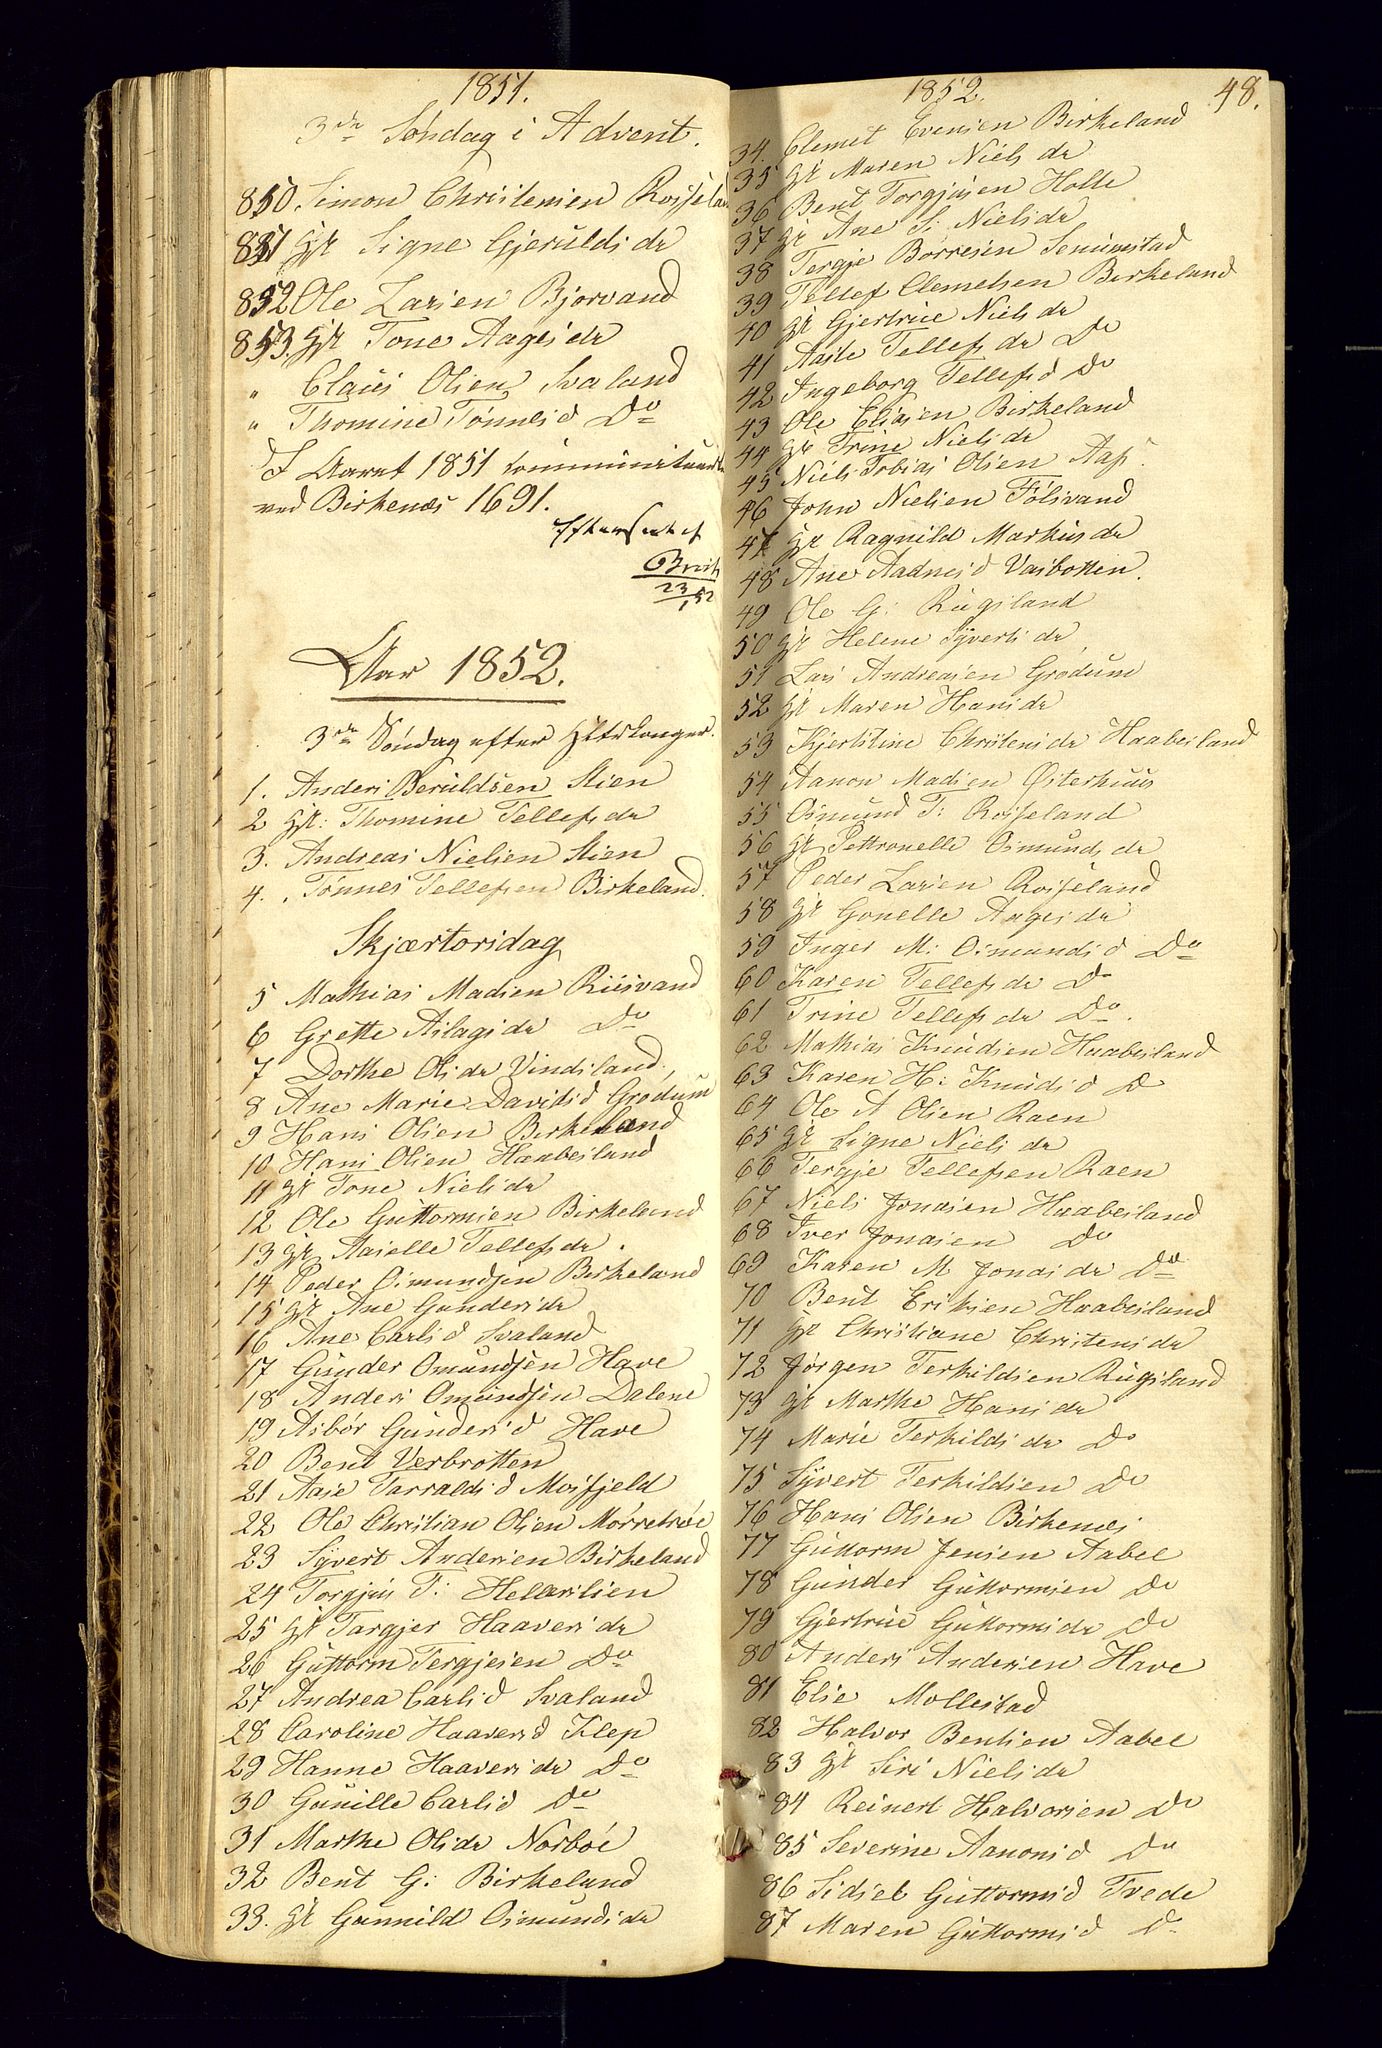 1851.
3die Søndag i Advent.
850. Simon Christensen Rosseland
851 Hst Signe Gjeruldsdr
852 Ole Larsen Bjorvand
853. Hst Tone Aagesdr
" Claus Olsen Svaland
" Thomine Tønnesd Do
I Aaret 1851 communiceret
ved Birkenæs 1691.
Efterseet af
23/1 52
Aar 1852.
3die Søndag efter Hlt3konger.
1. Anders Beruldsen Stien
2 Hst: Thomine Tellefsdr
3. Andreas Nielsen Stien
4. Tønnes Tellefsen Birkeland.
Skjærtorsdag
5 Mathias Madsen Riisvand
6 Grette Aslagsdr Do
7 Dorthe Olsdr Vindsland.
8 Ane Marie Davidsd Grødum
9 Hans Olsen Birkeland
10 Hans Olsen Haabesland
11 Hst Tone Nielsdr
12 Ole Guttormsen Birkeland
13 Hst Aaselle Tellefsdr.
14 Peder Osmundsen Birkeland
15 Hst Ane Gundersdr
16 Ane Carlsd Svaland
17 Gunder Omundsen Have
18 Anders Omundsen Dalene
19 Asbør Gundersd Have
20 Bent Verbrotten
21 Aase Tarraldsd Mosfjeld
22 Ole Christian Olsen Mørretrøe
23 Syvert Andersen Birkeland
24 Torgjus T: Hellerslien
25 Hst Targjer Haaversdr
26 Guttorm Tergjesen Do
27 Andrea Carlsd Svaland
28 Caroline Haaversd Klep
29 Hanne Haaversdr Do
30 Gunille Carlsd Do
31 Marthe Olsdr Norbøe
32 Bent G: Birkeland
33. Hst Gunnild Osmundsdr
1852. 48.
34. Clemet Evensen Birkeland
35 Hst Maren Nielsdr
36 Bent Torgjusen Holte
37 Hst Ane S. Nielsdr
38 Tergje Børresen Senumstad
39 Tellef Clemetsen Birkeland
40 Hst Gjertrue Nielsdr
41 Aaste Tellefsdr Do
42 Ingeborg Tellefsd Do
43 Ole Eliasen Birkeland
44 Hst Trine Nielsdr
45 Niels Tobias Olsen Aas.
46 John Nielsen Føls­vand
47 Hst Ragnild Markusdr
48 Ane Aadnesd Vasbotten.
49 Ole G: Rugsland
50 Hst Helene Syvertsdr
51 Lars Andreasen Grødum
52 Hst Maren Hansdr
53 Kjerstine Christensdr Haabesland
54 Aanon Madsen Østerhuus
55 Osmund T: Rosseland
56 Hst Pettronelle Osmundsdr
57 Peder Larsen Rosseland
58 Hst Gonelle Aagesdr
59 Inger M: Osmundsd Do
60 Karen Tellefsdr Do
61 Trine Tellefsdr Do.
62 Mathias Knudsen Haabesland
63 Karen H: Knudsd Do
64 Ole A Olsen Raen
65 Hst Signe Nielsdr
66 Tergje Tellefsen Raen
67 Niels Jonasen Haabesland
68 Iver Jonasen Do
69 Karen M Jonasdr Do
70 Bent Eriksen Haabesland
71 Hst Christiane Christensdr
72 Jørgen Terkildsen Rugsland
73 Hst Marthe Hansdr
74 Marie Terkildsdr Do
75 Syvert Terkildsen Do
76 Hans Olsen Birkenæs
77 Guttorm Jensen Aabel
78 Gunder Guttormsen Do
79 Gjertrue Guttormsdr Do
80 Anders Andersen Have
81 Elie Mollestad
82 Halvor Bentsen Aabel
83 Hst Siri Nielsdr
84 Reinert Halvorsen Do
85 Severine Aanonsd Do
86 Sidsel Guttormsd Tvede
87 Maren Guttormsd Do